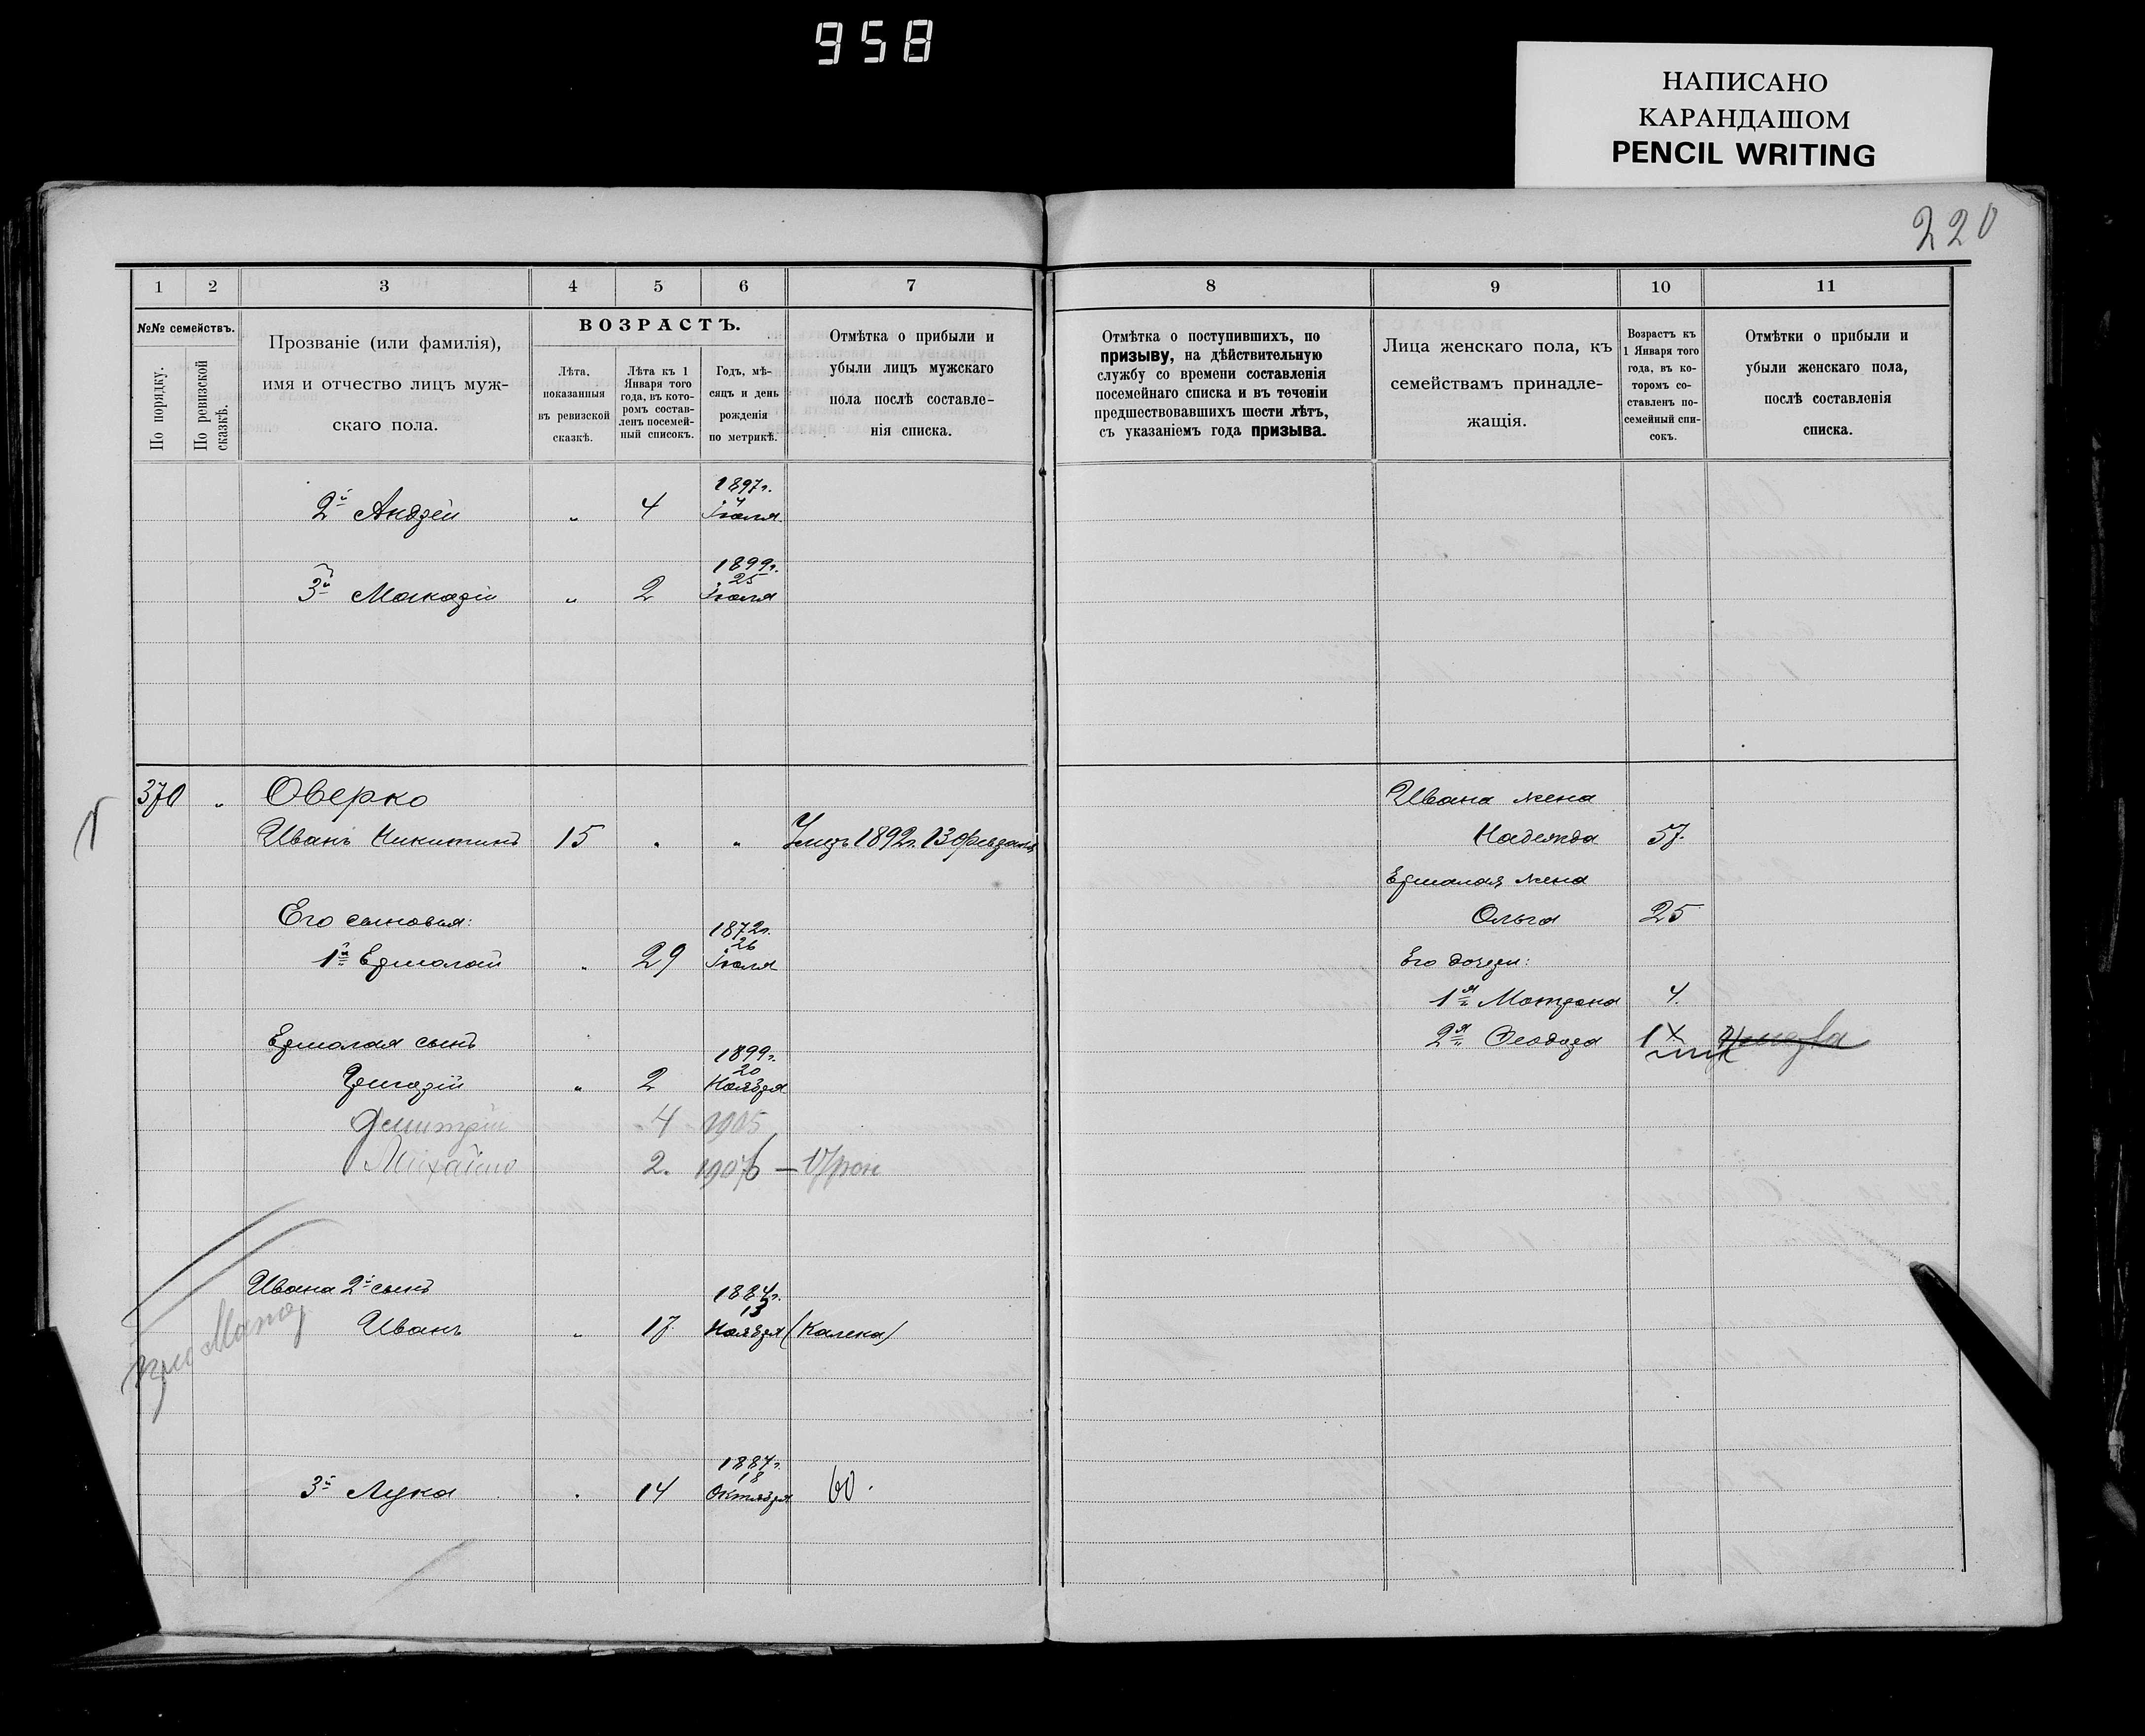 958
НАПИСАНО
КАРАНДАШОМ
PENCIL WRITING
220
1 2 3 4 5 6 7 8 9 10 11
№№ семействъ.
По порядку.
По ревизской сказкѣ.
Прозваніе (или фамилія),
имя и отчество лицъ муж-
скаго пола.
ВОЗРАСТЪ.
Лѣта,
показанныя
въ ревизской
сказкѣ.
Лѣта къ 1
Января того
года, въ кото-
ромъ состав-
ленъ посемей-
ный списокъ.
Годъ, мѣ-
сяцъ и день
рожденія
по метрикѣ.
Отмѣтка о прибыли и
убыли лицъ мужскаго
пола послѣ составле-
нія списка.
Отмѣтка о поступившихъ, по
призыву, на дѣйствительную
службу со времени составленія
посемейнаго списка и въ теченіи
предшествовавшихъ шести лѣтъ,
съ указаніемъ года призыва.
Лица женскаго пола, къ
семействамъ принадле-
жащія.
Возрастъ къ
1 Января того
года, въ ко-
торомъ со-
ставленъ по-
семейный спи-
сокъ.
Отмѣтки о прибыли и
убыли женскаго пола,
послѣ составленія
списка.
1897г.
2й Андрей " 4 4 Іюля
1899г.
25
3й Макарій " 2 Іюля
370 " Оверко
Иванъ Никитинъ 15 " " Умеръ 1892г. 13 Февраля
Его сыновья:
1872г.
26
1й Ермолай " 29 Іюля
Ермолая сынъ
1899г.
20
Григорій " 2 Ноября
Димитрій 4 1905
Михайло 2. 1906 —
Ивана 2й сынъ
1884г.
13
Иванъ " 17 Ноября (Калека)
1887г.
18
3й Лука " 14 Октября 60.
Ивана жена
Надежда 57.
Ермолая жена
Ольга 25
Его дочери:
1я Мотрона 4.
2я Ѳеодора 1